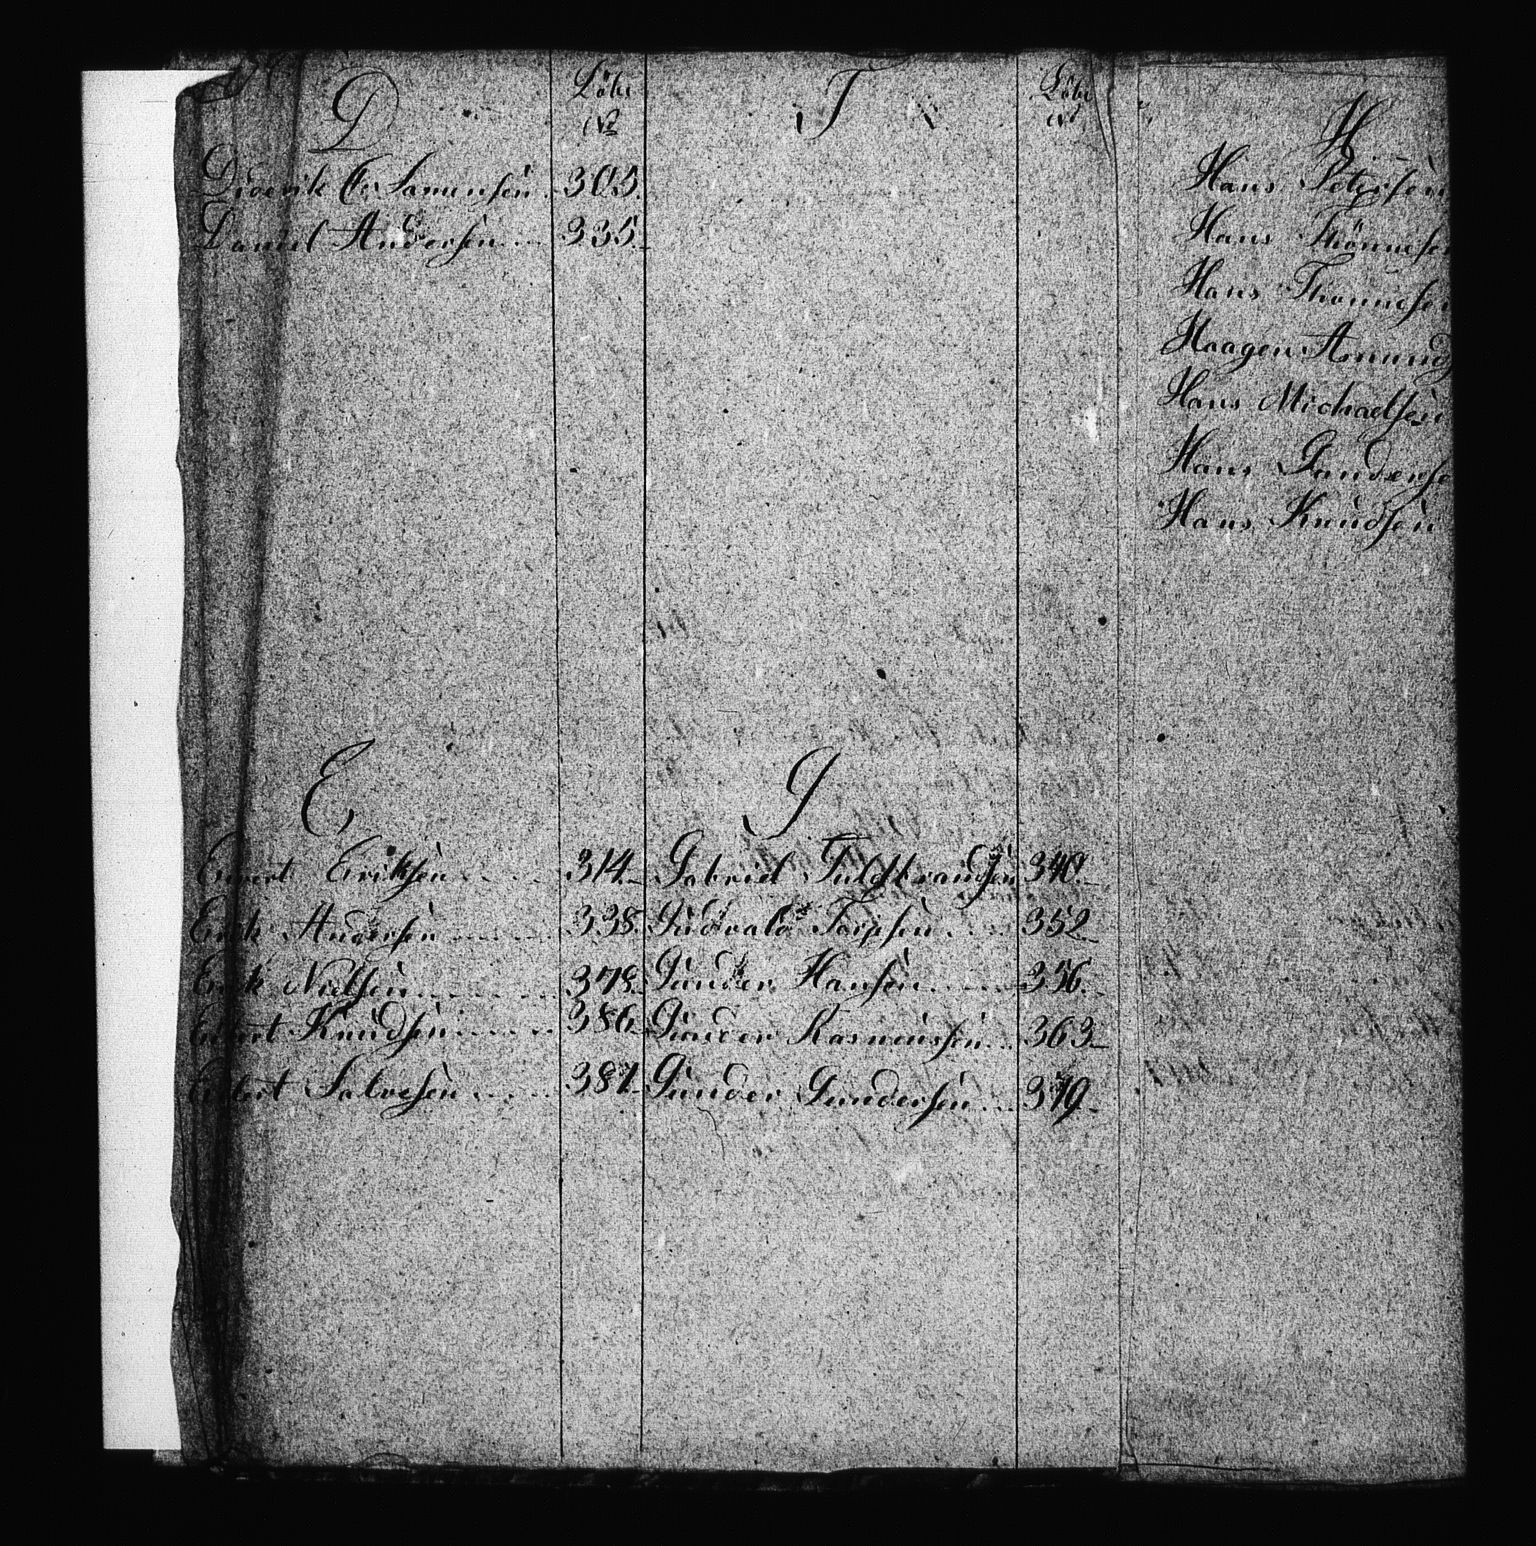 D
Løbe
No
Diderik Chr Samuelsen 305.
Daniel Andersen 335.
E
Evert Eriksen 314.
Erik Andersen 338.
Erik Nielsen 378.
Evert Knudsen 386.
Salvesen 387.
F
Løbe
No
G
Gabriel Fuldtrandsen 340.
Gudvald Torjesen 352
Gunder Hansen 356.
Gunder Rasmussen 363
Gunder Gundersen 379.
H
Hans Petersen
Hans Thönnesen
Hans Thönnesen
Haagen Amunds
Hans Michaelsen
Hans Gunderse
Hans Knudsen